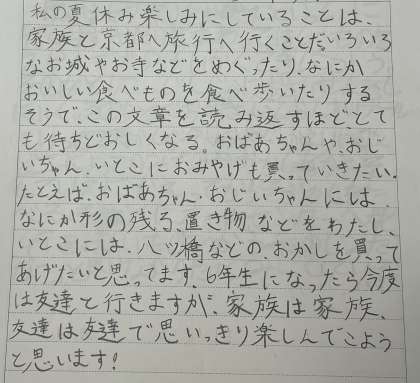 私の夏休み楽しみにしていることは、
家族と京都へ旅行へ行くことだ。いろいろ
なお城やお寺などをめぐったり、なにか
おいしい食べものを食べ歩いたりする
そうで、この文章を読み返すほど、とて
も待ちどおしくなる。おばあちゃんや、おじ
いちゃん、いとこにおみやげも買っていきたい。
たとえば、おばあちゃん・おじいちゃんには、
なにか形の残る、置き物などをわたし、
いとこには、八ツ橋などの、おかしを買って
あげたいと思ってます。6年生になったら今度
は友達と行きますが、家族は家族、
友達は友達で思いっきり楽しんでこよう
と思います!